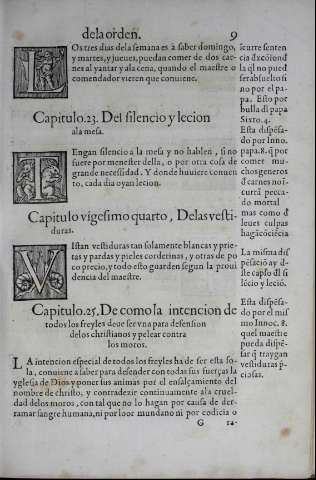 dela orden. 9
LOs tres dias dela semana es à saber domingo,
y martes, y jueues, puedan comer de dos car-
nes al yantar y ala cena, quando el maestre o
comendador vieren que conuiene.
Capitulo.23. Del silencio y lecion
ala mesa.
TEngan silencio a la mesa y no hablen, si no
fuere por menester della, o por otra cosa de
grande necessidad. Y donde huuiere conuen
to, cada dia oyan lecion.
Capitulo vigesimo quarto, Delas vesti-
duras.
VIstan vestiduras tan solamente blancas y prie-
tas y pardas y pieles corderinas, y otras de po
co precio, y todo esto guarden segun la proui
dencia del maestre.
Capitulo.25. De como la intencion de
todos los freyles deue ser vna para defension
delos christianos y pelear contra
los moros.
LA intencion especial de todos los freyles ha de ser esta so-
la, conuiene a saber para defender con todas sus fuerças la
yglesia de Dios y poner sus animas por el ensalçamiento del
nombre de christo, y contradezir continuamente ala cruel-
dad delos moros, con tal que no lo hagan por causa de der-
ramar sangre humana, ni por loor mundano ni por codicia o
G ra-
scurre senten
cia
la q̃l no pued
ser absuelto si
no por el pa-
pa. Esto por
bulla dl papa
Sixto.4.
Esta dispẽsa-
do por Inno.
papa.8. q̃ por
comer mu-
chos generos
d carnes noĩ
currã pecca-
do mortal
mas como d
leues culpas
La misma dis
pẽsació ay d-
ste capło dl si
lẽcio y leció.
Esta dispẽsa-
do por el mis
mo Innoc.8.
quel maestre
pueda dispẽ-
sar q̃ traygan
vestiduras p̃-
ciosas.